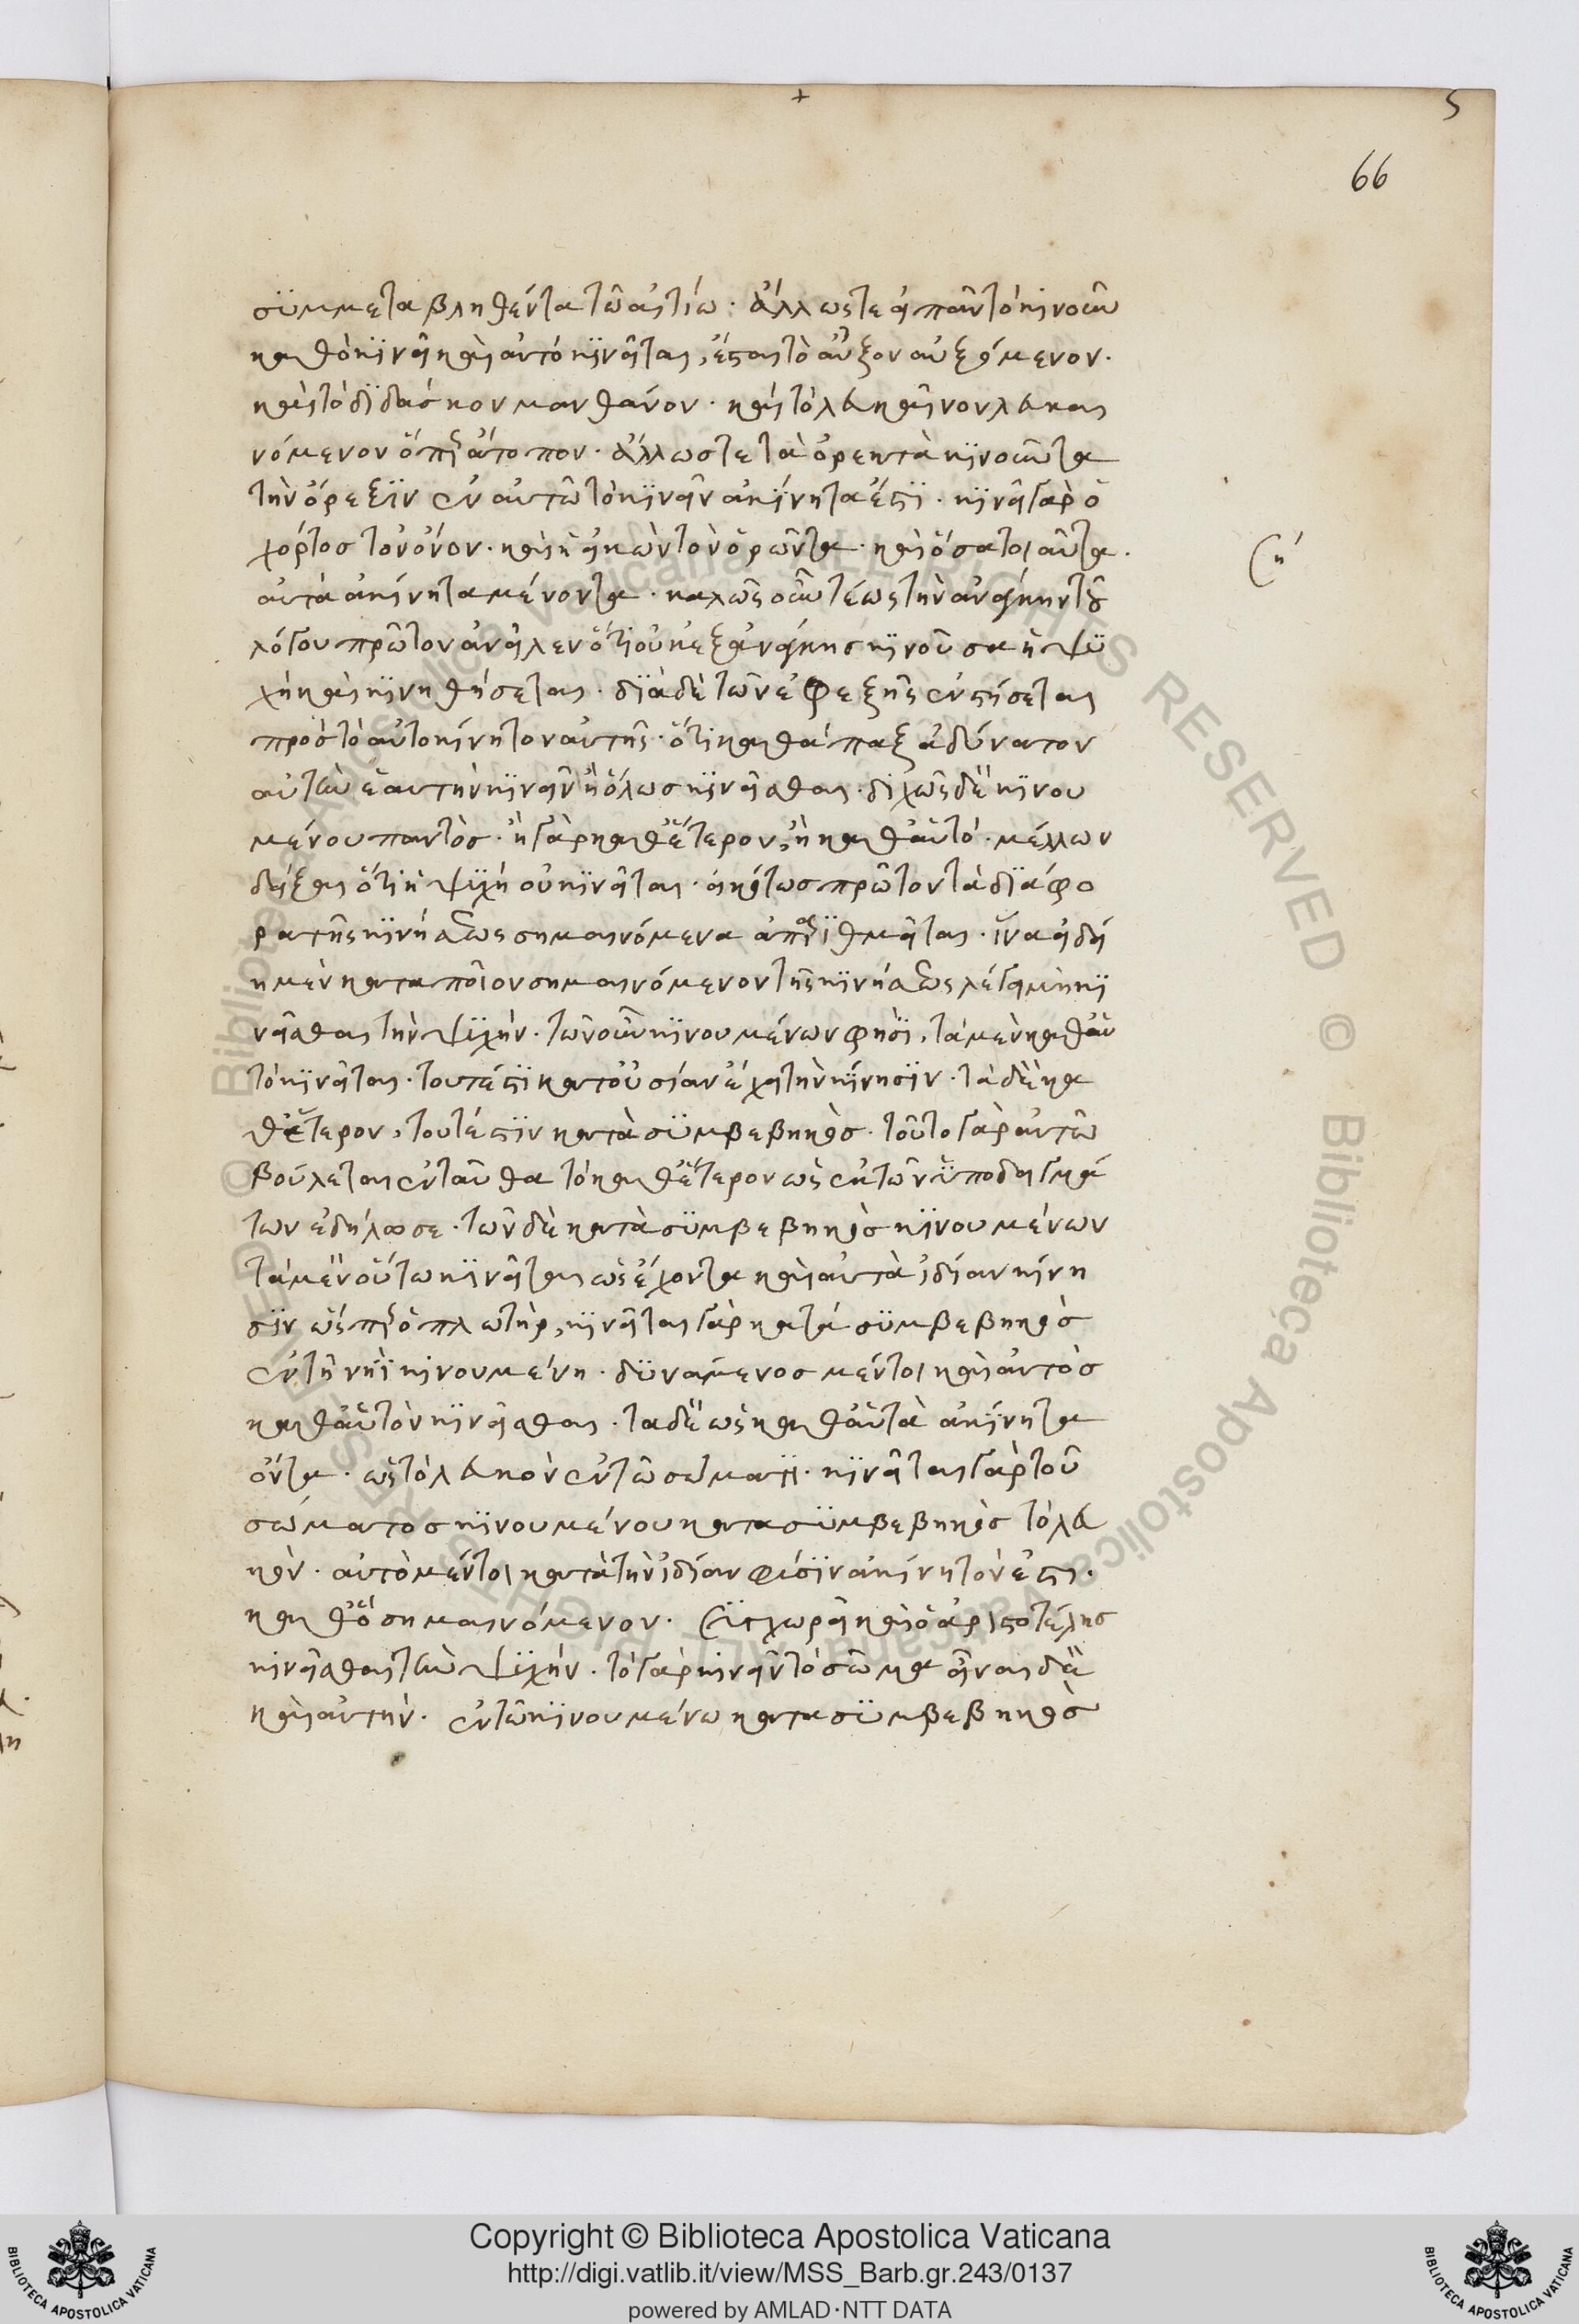 5
66
συμμεταβληθέντα τῶ αἰτίω· ἄλλως τε εἰ πᾶν τὸ κινοῦν
καθὸ κινεῖ καὶ αὐτὸ κινεῖται, ἔσται τὸ αὖξον αὐξόμενον·
καὶ τὸ διδάσκον μανθάνον· καὶ τὸ λευκαῖνον λευκαι
νόμενον ὅπερ ἄτοπον· ἄλλως τε τὰ ὀρεκτὰ κινοῦντα
τὴν ὄρεξιν ἐν αὐτῶ τὸ κινεῖν ἀκίνητα ἐστι· κινεῖ γὰρ ὁ
χόρτος τὸν ὄνον· καὶ ἡ εἰκὼν τὸν ὁρῶντα· καὶ ὅσα τοιαῦτα·
αὐτὰ ἀκίνητα μένοντα· καλῶς οὖν τέως τὴν ἀνάγκην τοῦ
λόγου πρῶτον ἀνεῖλεν ὅτι οὐκ ἐξ ἀνάγκης κινοῦσα ἡ ψυ
χὴ καὶ κινηθήσεται· διὰ δὲ τῶν ἐφεξῆς ἐνστήσεται
πρὸς τὸ αὐτοκίνητον αὐτῆς· ὅτι καθάπαξ ἀδύνατον
αὐτὴν ἑαυτὴν κινεῖν ἢ ὅλως κινεῖσθαι· διχῶς δὲ κινου
μένου παντὸς· ἢ γὰρ καθ' ἕτερον, ἢ καθ' αὑτό· μέλλων
δεῖξαι ὅτι ἡ ψυχὴ οὐ κινεῖται· εἰκότως πρῶτον τὰ διάφο
ρα τῆς κινήσεως σημαινόμενα ἀπαριθμεῖται· ἵνα εἰδεί
η μὲν κατὰ ποῖον σημαινόμενον τῆς κινήσεως λέγει μὴ κι
νεῖσθαι τὴν ψυχήν· τῶν οὖν κινουμένων φησὶ, τὰ μὲν καθ' αὑ
τὸ κινεῖται· τουτέστι κατ' οὐσίαν ἔχει τὴν κίνησιν· τὰ δὲ κα
θ' ἕτερον, τουτέστιν κατὰ συμβεβηκός· τοῦτο γὰρ αὐτῶ
βούλεται ἐνταῦθα τὸ καθ' ἕτερον ὡς ἐκ τῶν ὑποδειγμά
των ἐδήλωσε· τῶν δὲ κατὰ συμβεβηκὸς κινουμένων
τὰ μὲν οὕτω κινεῖται ὡς ἔχοντα καὶ αὐτὰ ἰδίαν κίνη
σιν ὥσπερ ὁ πλωτὴρ, κινεῖται γὰρ κατὰ συμβεβηκὸς
ἐν τῆ νηῒ κινουμένη· δυνάμενος μέντοι καὶ αὐτὸς
καθ' αὑτὸν κινεῖσθαι· τὰ δὲ ὡς καθ' αὑτὰ ἀκίνητα
ὄντα· ὡς τὸ λευκὸν ἐν τῶ σώματι· κινεῖται γὰρ τοῦ
σώματος κινουμένου κατὰ συμβεβηκὸς τὸ λευ
κὸν· αὐτὸ μέντοι κατὰ τὴν ἰδίαν φύσιν ἀκίνητόν ἐστι·
καθ' ὃ σημαινόμενον· συγχωρεῖ καὶ ὁ ἀριστοτέλης
κινεῖσθαι τὴν ψυχήν· τὸ γὰρ κινεῖν τὸ σῶμα εἶναι δὲ
καὶ αὐτὴν· ἐν τῶ κινουμένω κατὰ συμβεβηκὸς
Copyright © Biblioteca Apostolica Vaticana
http://digi.vatlib.it/view/MSS_Barb.gr.243/0137
powered by AMLAD·NTT DATA